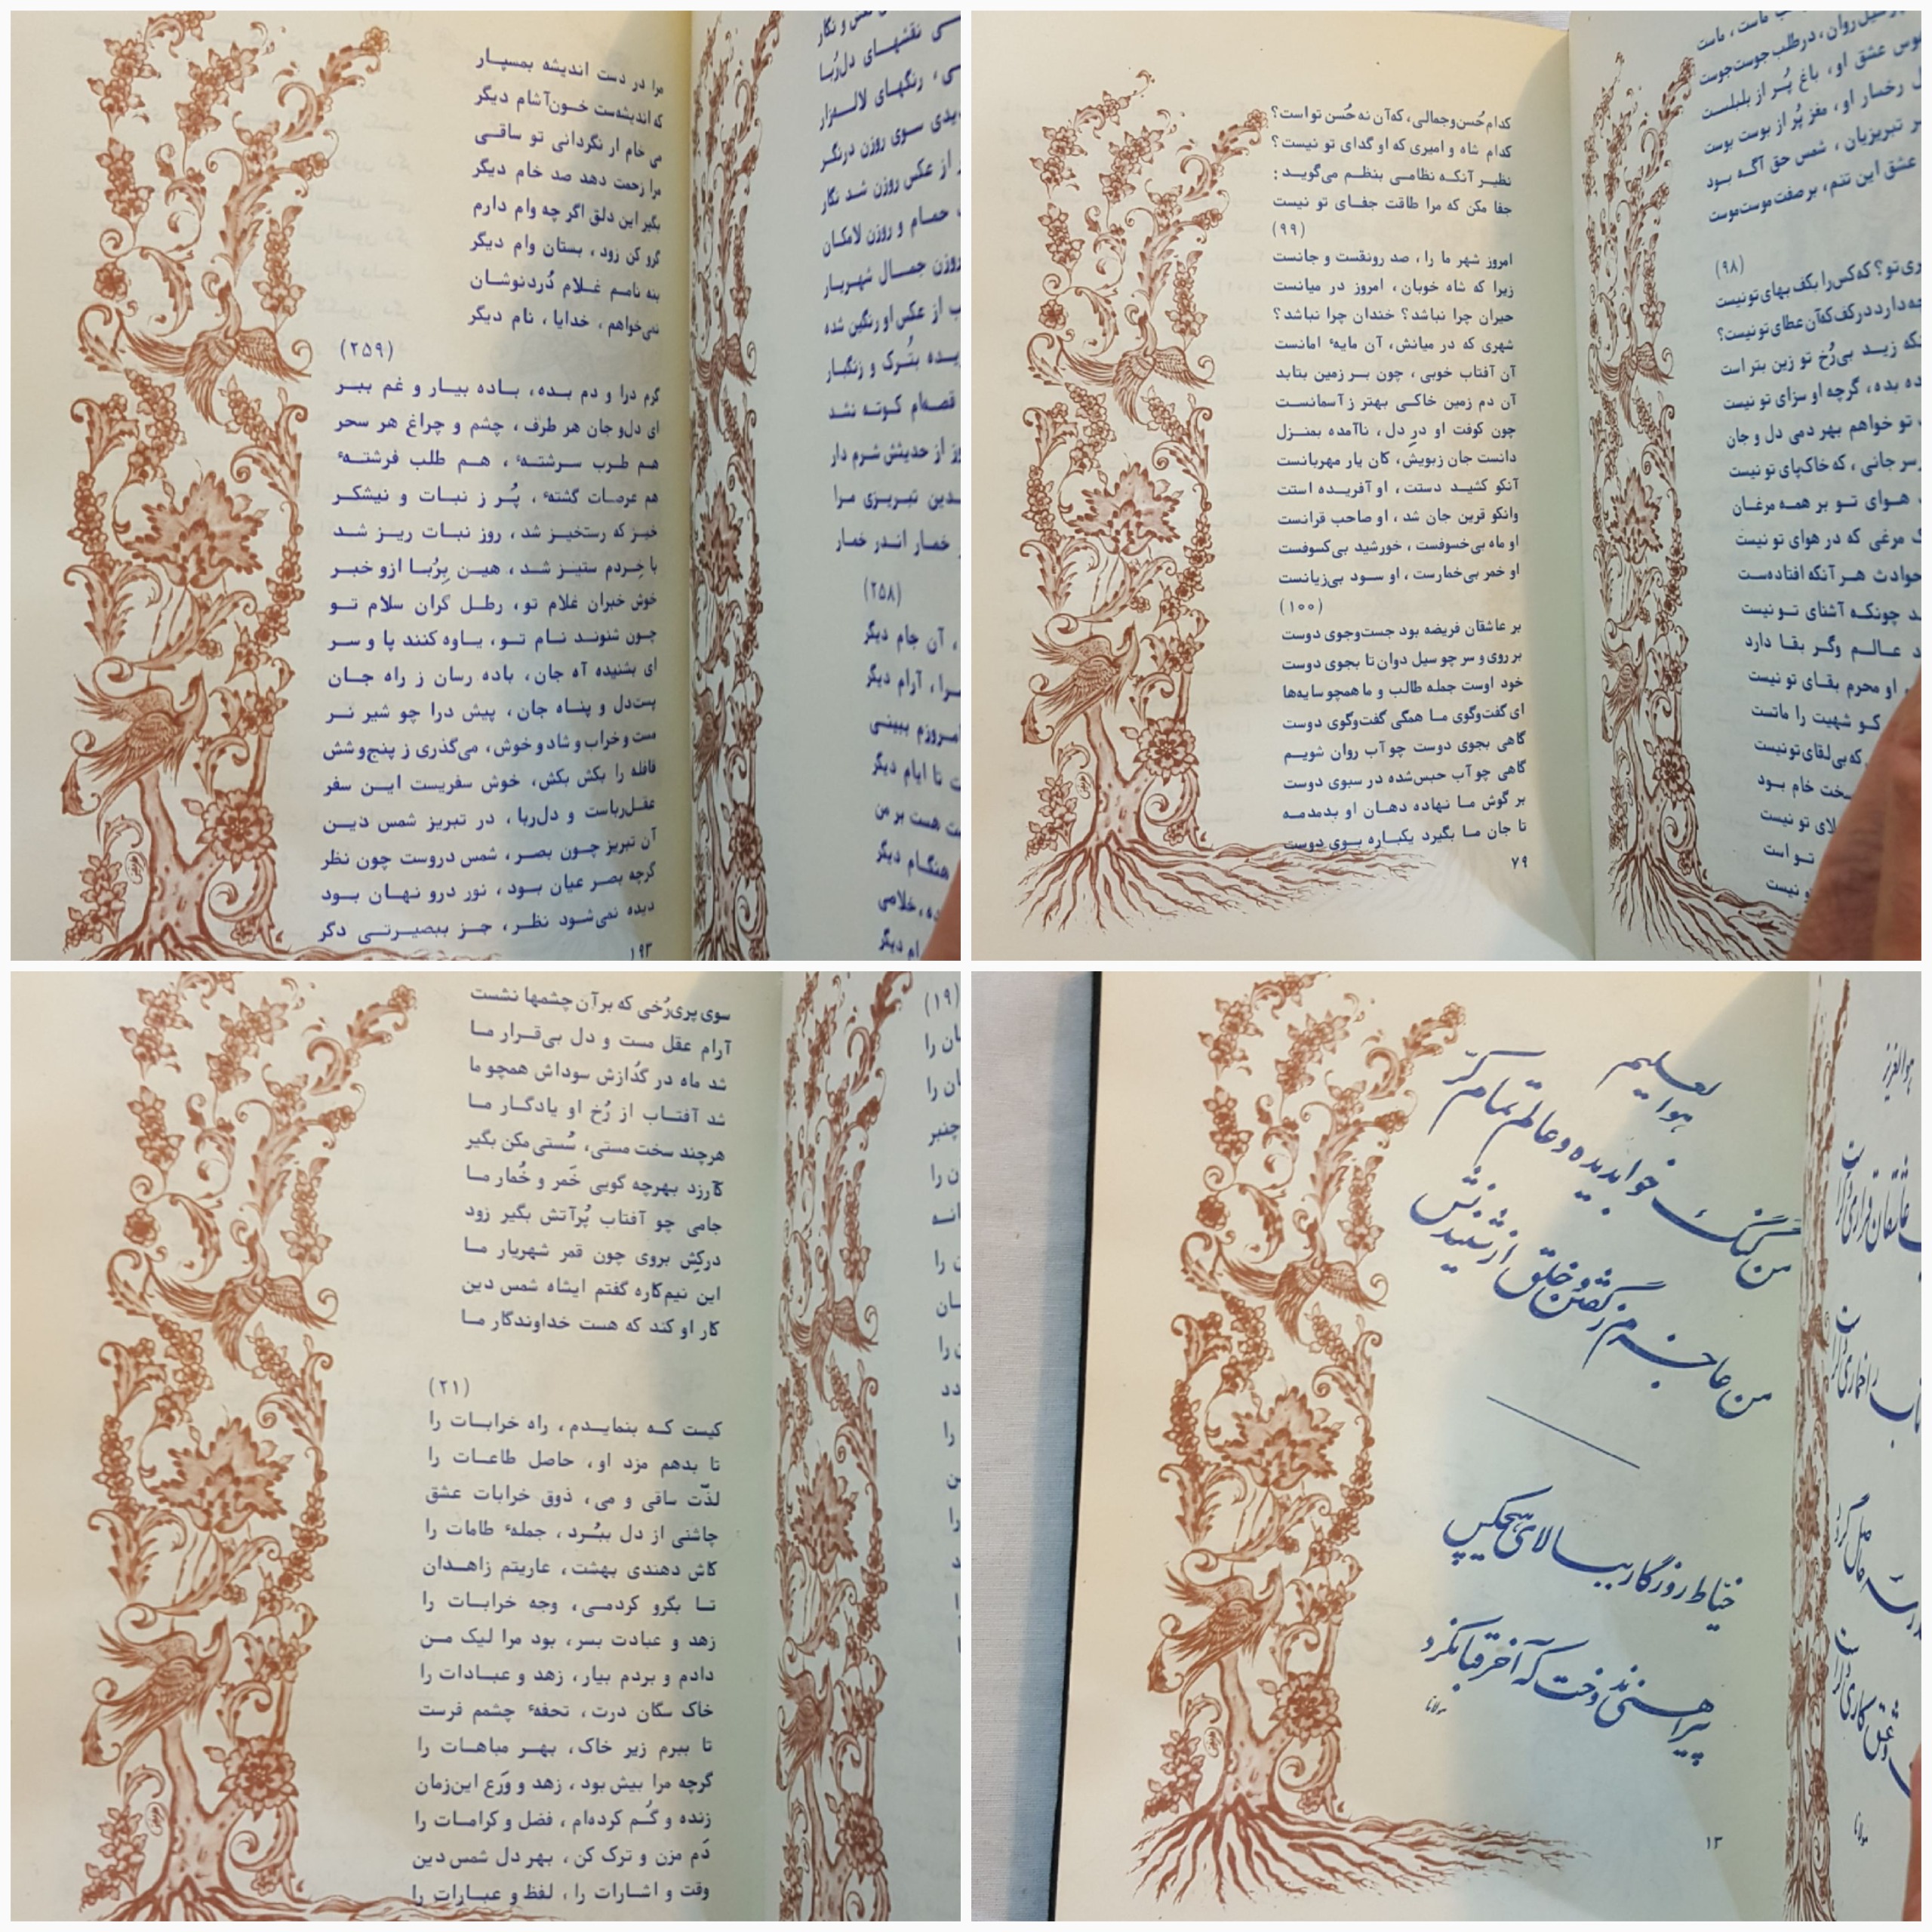 مرا در دست اندیشه بمسپار
که اندیشه‌ست خون‌آشام دیگر
می خام ار نگردانی تو ساقی
مرا زحمت دهد صد خام دیگر
بگیر این دلق اگر چه وام دارم
گرو کن زود ، بستان وام دیگر
بنه نامم غلام دُردنوشان
نمی‌خواهم ، خدایا ، نام دیگر
(۲۵۹)
گرم درا و دم بده، باده بیار و غم ببر
ای دل‌و جان هر طرف ، چشم و چراغ هر سحر
هم طرب سرشتهٔ ، هم طلب فرشتهٔ
هم عرصات گشتهٔ ، پُر ز نبات و نیشکر
خیز که رستخیز شد ، روز نبات ریز شد
با خِردم ستیز شد، هین بِرُبا ازو خبر
خوش خبران غلام تو ، رطل گران سلام تو
چون شنوند نام تو، یاوه کنند پا و سر
ای بشنیده آه جان، باده رسان ز راه جان
پست‌دل و پناه جان، پیش درا چو شیر نر
مست و خراب و شاد و خوش، می‌گذری ز پنج‌و‌شش
قافله را بکش بکش، خوش سفریست این سفر
عقل‌رباست و دل‌ربا ، در تبریز شمس دین
آن تبریز چون بصر، شمس دروست چون نظر
گرچه بصر عیان بود ، نور درو نهان بود
دیده نمی‌شود نظر، جز ببصیرتی دگر
۱۹۳
نقشهای دل‌رُبا
رنگهای لاله‌زار
سوی روزن درنگر
از عکس روزن شد نگار
حمام و روزن لامکان
روزن جمال شهریار
از عکس او رنگین شده
بتُرک و زنگبار
قصه‌ام کوته نشد
از حدیثش شرم دار
تبریزی مرا
خمار اندر خمار
(۲۵۸)
آن جام دیگر
آرام دیگر
ببینی
تا ایام دیگر
هست بر من
هنگام دیگر
دیگر
کدام حُسن‌و‌جمالی، که‌آن نه حُسن تو است؟
کدام شاه و امیری که او گدای تو نیست؟
نظیر آنکه نظامی بنظم می‌گوید:
جفا مکن که مرا طاقت جفای تو نیست
(۹۹)
امروز شهر ما را ، صد رونقست و جانست
زیرا که شاه خوبان ، امروز در میانست
حیران چرا نباشد؟ خندان چرا نباشد؟
شهری که در میانش، آن مایهٔ امانست
آن آفتاب خوبی ، چون بر زمین بتابد
آن دم زمین خاکی بهتر ز آسمانست
چون کوفت او در دل ، ناآمده بمنزل
دانست جان زبویش، کان یار مهربانست
آنکو کشید دستت ، او آفریده استت
وانکو قرین جان شد ، او صاحب قرانست
او ماه بی‌خسوفست ، خورشید بی‌کسوفست
او خمر بی‌خمارست ، او سود بی‌زیانست
(۱۰۰)
بر عاشقان فریضه بود جست‌وجوی دوست
بر روی و سر چو سیل دوان تا بجوی دوست
خود اوست جمله طالب و ما همچو سایه‌ها
ای گفت‌وگوی ما همگی گفت‌وگوی دوست
گاهی بجوی دوست چو آب روان شویم
گاهی چو آب حبس‌شده در سبوی دوست
بر گوش ما نهاده دهان او بدمدمه
تا جان ما بگیرد یکباره بوی دوست
۷۹
روان ، در طلب جوست‌جوست
عشق او، باغ پُر از بلبلست
رخسار او، مغز پُر از پوست پوست
تبریزیان ، شمس حق آگه بود
عشق این تنم، بر صفت موست‌موست
(۹۸)
تو؟ که کس را بکف بهای تو نیست
دارد در کف که‌آن عطای تو نیست؟
زید بی‌رُخ تو زین بتر است
بده ، گرچه او سزای تو نیست
تو خواهم بهر دمی دل و جان
جانی ، که خاک‌پای تو نیست
هوای تو بر همه مرغان
مرغی که در هوای تو نیست
حوادث هر آنکه افتاده‌ست
چونکه آشنای تو نیست
عالم وگر بقا دارد
او محرم بقای تو نیست
کو شهیت را ماتست
که بی لقای تو نیست
خام بود
تو نیست
تو است
نیست
سوی پری‌رُخی که بر آن چشمها نشست
آرام عقل مست و دل بی‌قرار ما
شد ماه در گُدازش سوداش همچو ما
شد آفتاب از رُخ او یادگار ما
هرچند سخت مستی، سُستی مکن بگیر
کآرزد بهرچه گویی خَمر و خُمار ما
جامی چو آفتاب پُرآتش بگیر زود
درکِش بروی چون قمر شهریار ما
این نیم‌کاره گفتم ایشاه شمس دین
کار او کند که هست خداوندگار ما
(۲۱)
کیست که بنمایدم ، راه خرابات را
تا بدهم مزد او، حاصل طاعات را
لذّت ساقی و می ، ذوق خرابات عشق
چاشنی از دل ببُرد ، جملهٔ طامات را
کاش دهندی بهشت ، عاریتم زاهدان
تا بگرو کردمی، وجه خرابات را
زهد و عبادت بسر، بود مرا لیک من
دادم و بردم بیار ، زهد و عبادات را
خاک سگان درت ، تحفهٔ چشمم فرست
تا ببرم زیر خاک، بهر مباهات را
گرچه مرا بیش بود ، زهد و وَرَع این‌زمان
زنده و گُم کرده‌ام ، فضل و کرامات را
دَم مزن و ترک کن ، بهر دل شمس دین
وقت و اشارات را ، لفظ و عبارات را
(۱۹)
هوالعلیم
من گنگ خوابدیده و عالم تمام کر
من عاجزم ز گفتن و خلق از شنیدنش
خیاط روزگار ببالای هیچکس
پیراهنی ندوخت که آخر قبا نکرد
مولانا
۱۳
هوالعزیز
مولانا